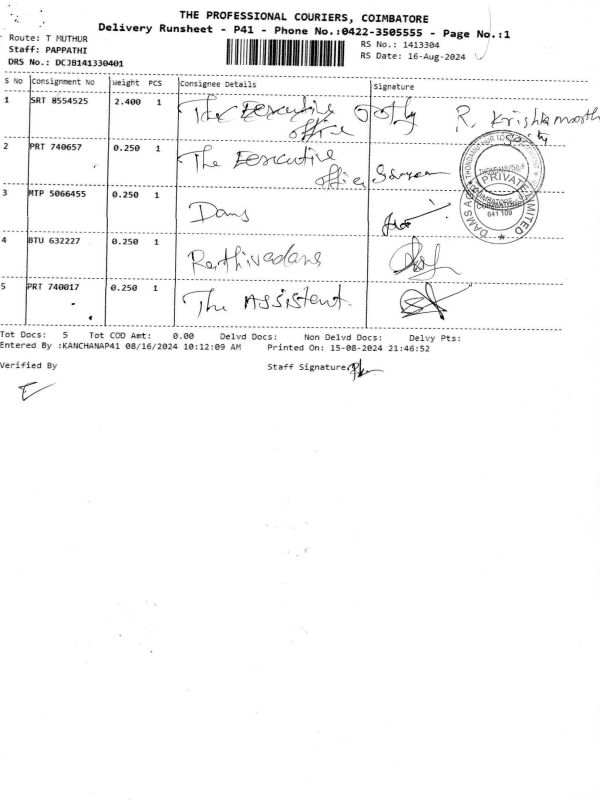 THE PROFESSIONAL COURIERS, COIMBATORE
Delivery Runsheet - P41 - Phone No.:0422-3505555 - Page No.:1
Route: T MUTHUR
Staff: PAPPATHI
DRS No.: DCJB141330401
RS No.: 1413304
RS Date: 16-Aug-2024
S No Consignment No Weight PCS Consignee Details Signature
1 SRT 8554525 2.400 1 The Executive
office
R. Krishnamoorthy
2 PRT 740657 0.250 1 The Executive
office
3 MTP 5066455 0.250 1 Dams
4 BTU 632227 0.250 1
5 PRT 740017 0.250 1 The Assistent.
THONDAMUTHUR
PRIVATE
COIMBATORE
641 109
LIMITED
DAMS
Tot Docs: 5 Tot COD Amt: 0.00 Delvd Docs: Non Delvd Docs: Delvy Pts:
Entered By :KANCHANAP41 08/16/2024 10:12:09 AM Printed On: 15-08-2024 21:46:52
Verified By Staff Signature